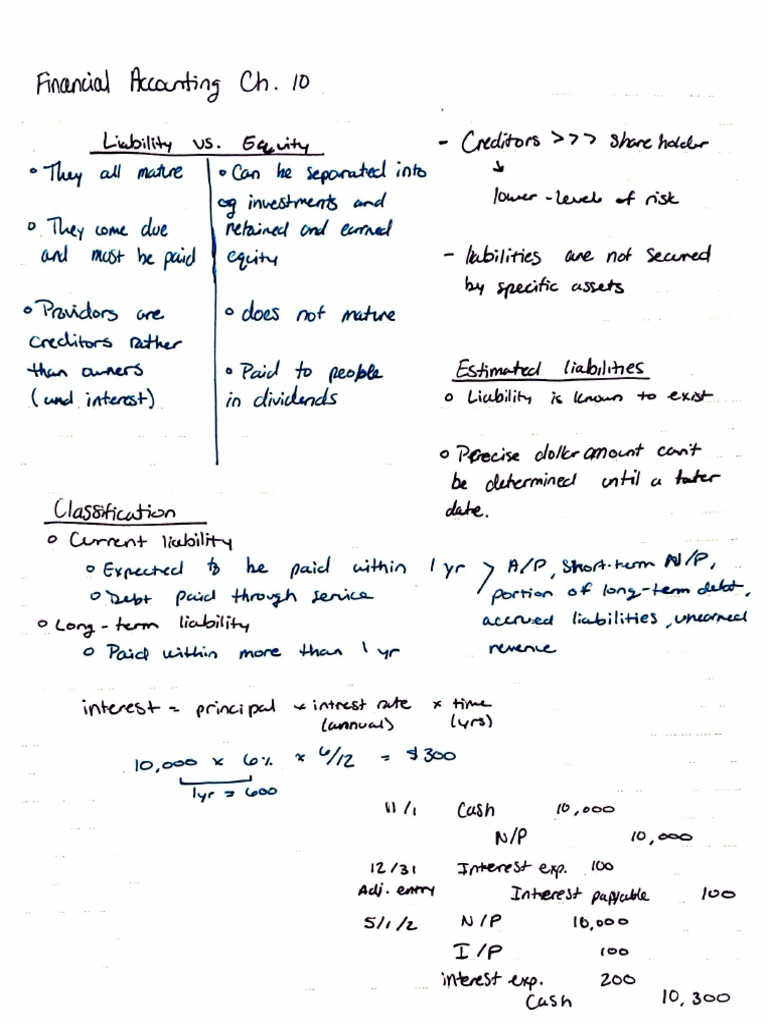 Financial Accounting Ch. 10
Liability vs. Equity
• They all mature
• They come due
and must be paid
• Providors are
creditors rather
than owners
(und interest)
• Can be separated into
og investments and
retained and earned
equity
• does not mature
• Paid to people
in dividends
- Creditors >>> Shareholder
↓
lower-levels of risk
- liabilities are not secured
by specific assets
Estimated liabilities
• Liability is known to exist
• Precise dollar amount can't
be determined until a later
date.
Classification
• Current liability
• Expected to be paid within 1 yr > A/P, Short-term N/P,
portion of long-term debt,
• Debt paid through service
accrued liabilities, unearned
revenue
• Long-term liability
• Paid within more than 1 yr
interest = principal × intrest rate × time
(annual) (yrs)
10,000 × 6% × 6/12 = $300
1yr = 600
11/1 Cash 10,000
N/P 10,000
12/31 Interest exp. 100
Adj. entry Interest payable 100
5/1/2 N/P 10,000
I/P 100
interest exp. 200
Cash 10,300